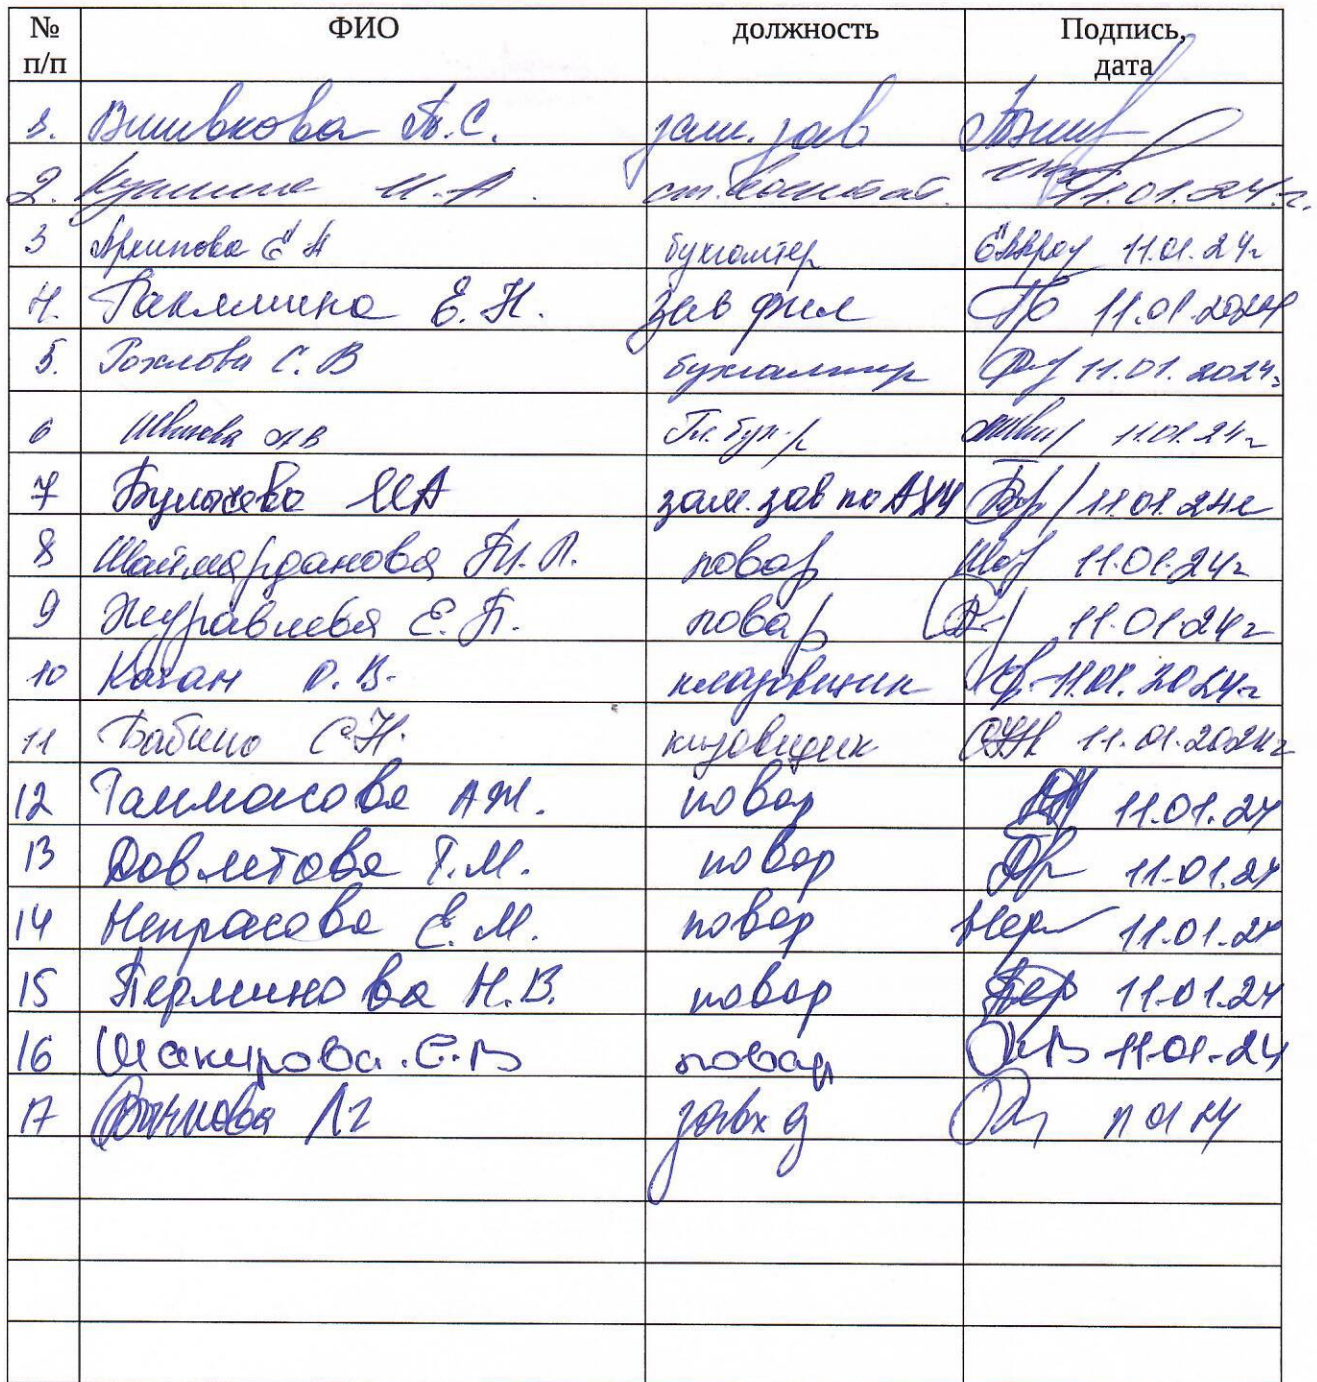 № п/п ФИО должность Подпись, дата
1. Вшивкова Т.С. зам. зав
2. И.А. ст. воспитат. 11.01.24 г.
3 Архипова Е А бухгалтер 11.01.24г
4. Е.Н. зав фил 11.01.2024
5. Рохлова С. В бухгалтер 11.01.2024г
6 АВ Гл. бух-р 11.01.24г
7 Булахова МА зам. зав по АХЧ 11.01.24г
8 Шаймарданова Л. повар 11.01.24г
9 Журавлева Е.П. повар 11.01.24г
10 Каган О.В. кладовщик 11.01.2024г
11 Бабина С.Н. 11.01.2024г
12 Таимасова А.Ж. повар 11.01.24
13 Давлетова Г.М. повар 11.01.24
14 Некрасова Е.М. повар 11.01.24
15 Перминова Н.В. повар 11.01.24
16 Шакирова.С.В повар 11.01.24
17 завхоз 11 01 24